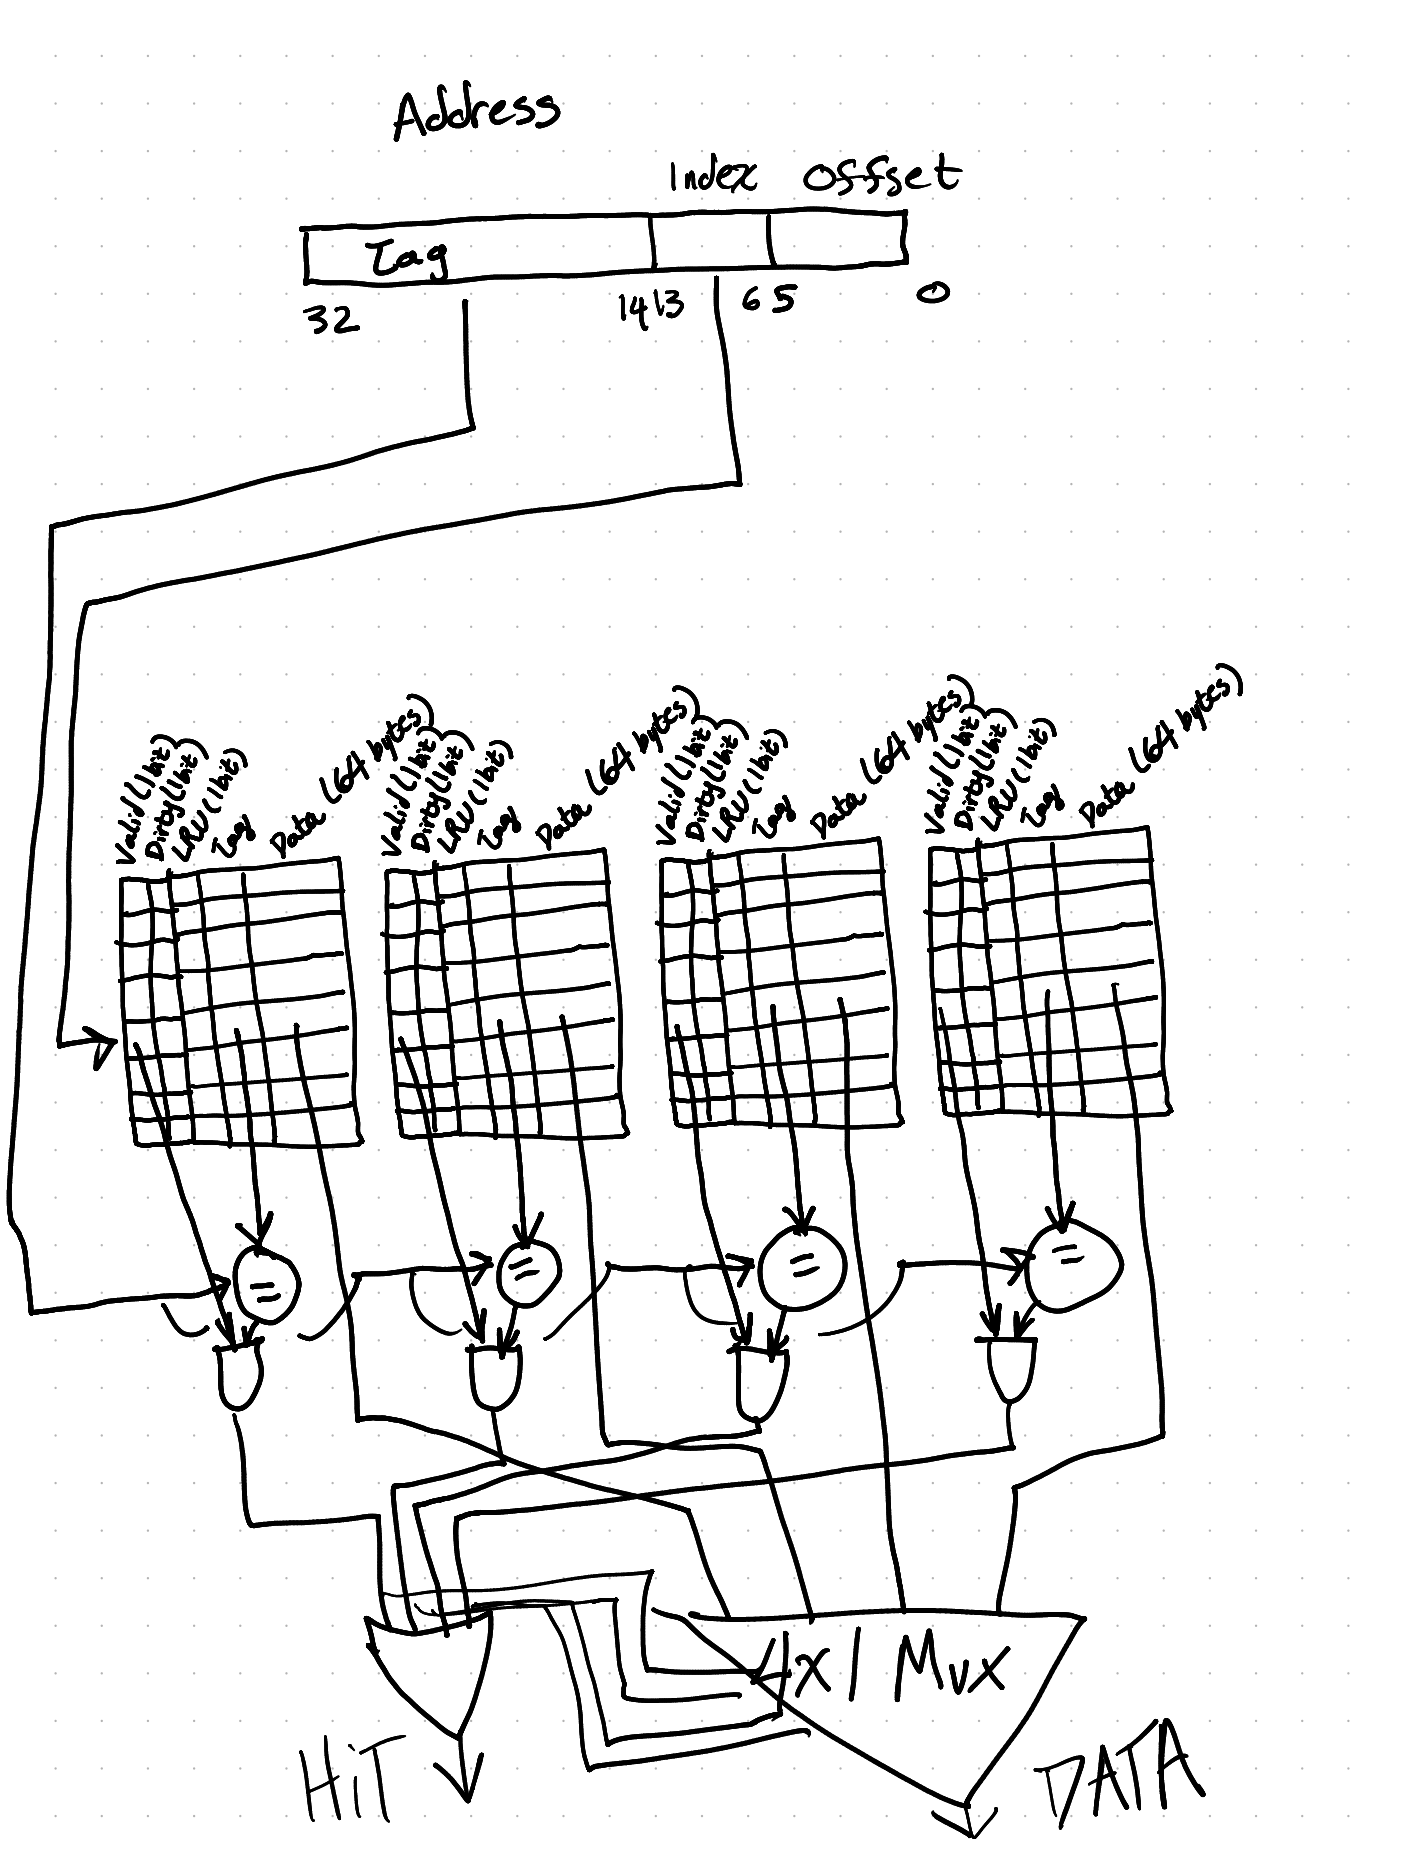 Address
Index Offset
Tag
32 14 13 6 5 0
Valid (1bit) Dirty (1bit) LRU (1bit) Tag Data (64 bytes)
Valid (1bit) Dirty (1bit) LRU (1bit) Tag Data (64 bytes)
Valid (1bit) Dirty (1bit) LRU (1bit) Tag Data (64 bytes)
Valid (1bit) Dirty (1bit) LRU (1bit) Tag Data (64 bytes)
= = = =
4x1 Mux
HiT
DATA